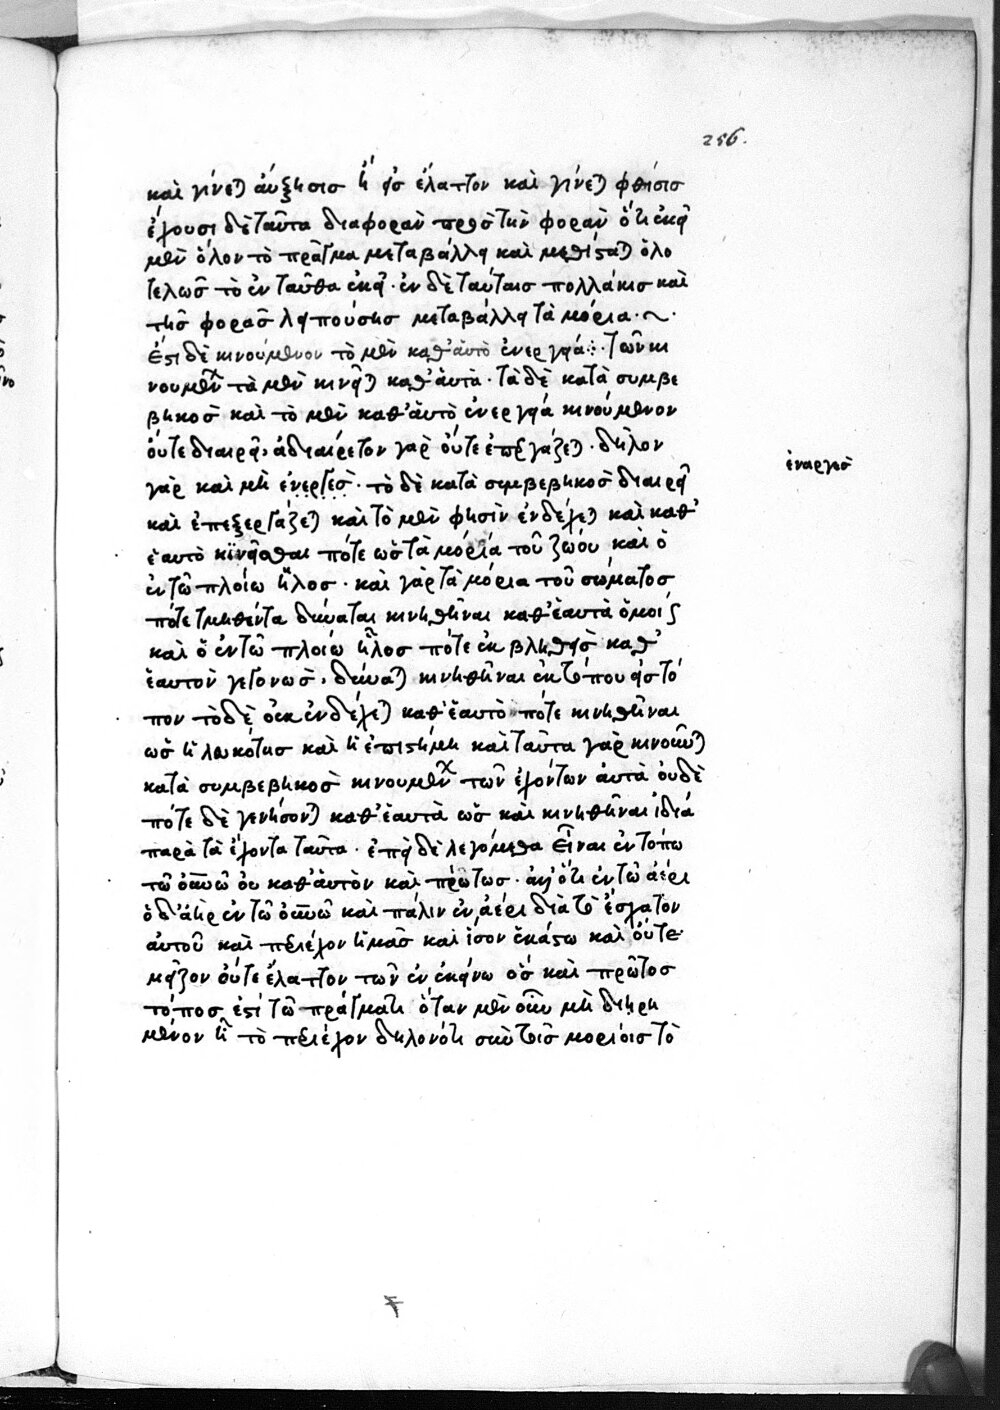 256.
καὶ γίνεται αὔξησισ ἢ εἰσ ἔλαττον καὶ γίνεται φθίσισ
ἔχουσι δὲ ταῦτα διαφορὰν πρὸσ τὴν φορὰν ὅτι ἐκεῖ
μὲν ὅλον τὸ πρᾶγμα μεταβάλλει καὶ μεθίσταται ὁλο
τελῶσ τὸ ἐνταῦθα ἐκεῖ· ἐν δὲ ταύταισ πολλάκισ καὶ
τῆσ φορᾶσ λειπούσησ μεταβάλλει τὰ μόρια·
ἔστι δὲ κινούμενον τὸ μὲν καθ' αὑτὸ ἐνεργείᾳ: τῶν κι
νουμένων τὰ μὲν κινεῖται καθ' αὑτά· τὰ δὲ κατὰ συμβε
βηκὸσ καὶ τὸ μὲν καθ' αὑτὸ ἐνεργείᾳ κινούμενον
οὔτε διαιρεῖ, ἀδιαίρετον γὰρ οὔτε ἐπεργάζεται· δῆλον
γὰρ καὶ μὴ ἐνεργέσ· τὸ δὲ κατὰ συμβεβηκὸσ διαιρεῖ
ἐναργὲσ
καὶ ἐπεξεργάζεται καὶ τὸ μὲν φησὶν ἐνδέχεται καὶ καθ'
ἑαυτὸ κινεῖσθαι πότε ὡσ τὰ μόρια τοῦ ζώου καὶ ὁ
ἐν τῶ πλοίω ἧλοσ· καὶ γὰρ τὰ μόρια τοῦ σώματοσ
πότε τμηθέντα δύναται κινηθῆναι καθ' ἑαυτὰ ὁμοίωσ
καὶ ὁ ἐν τῶ πλοίω ἧλοσ πότε ἐκβληθεὶσ καθ'
ἑαυτὸν γεγονὼσ, δύναται κινηθῆναι ἐκ τόπου εἰσ τό
πον τὸ δὲ οὐκ ἐνδέχεται καθ' ἑαυτὸ πότε κινηθῆναι
ὡσ ἡ λευκότησ καὶ ἡ ἐπιστήμη καὶ ταῦτα γὰρ κινοῦνται
κατὰ συμβεβηκὸσ κινουμένων τῶν ἐχόντων αὐτὰ οὐδὲ
πότε δὲ γενήσονται καθ' ἑαυτὰ ὡσ καὶ κινηθῆναι ἰδία
παρὰ τὰ ἔχοντα ταῦτα· ἐπεὶ δὲ λεγόμεθα εἶναι ἐν τόπω
τῶ οὐρανῶ οὐ καθ' αὑτὸν καὶ πρώτωσ· ἀλλ' ὅτι ἐν τῶ ἀέρι
ὁ δ' ἀὴρ ἐν τῶ οὐρανῶ καὶ πάλιν ἐν ἀέρι διὰ τὸ ἔσχατον
αὐτοῦ καὶ περιέχον ἡμᾶσ καὶ ἴσον ἑκάστω καὶ οὔτε
μεῖζον οὔτε ἔλαττον τῶν ἐν ἐκείνω ὃσ καὶ πρῶτοσ
τόποσ ἐστὶ τῶ πράγματι ὅταν μὲν οὖν μὴ διῃρη
μένον ἦ τὸ περιέχον δηλονότι σὺν τοῖσ μορίοισ τὸ